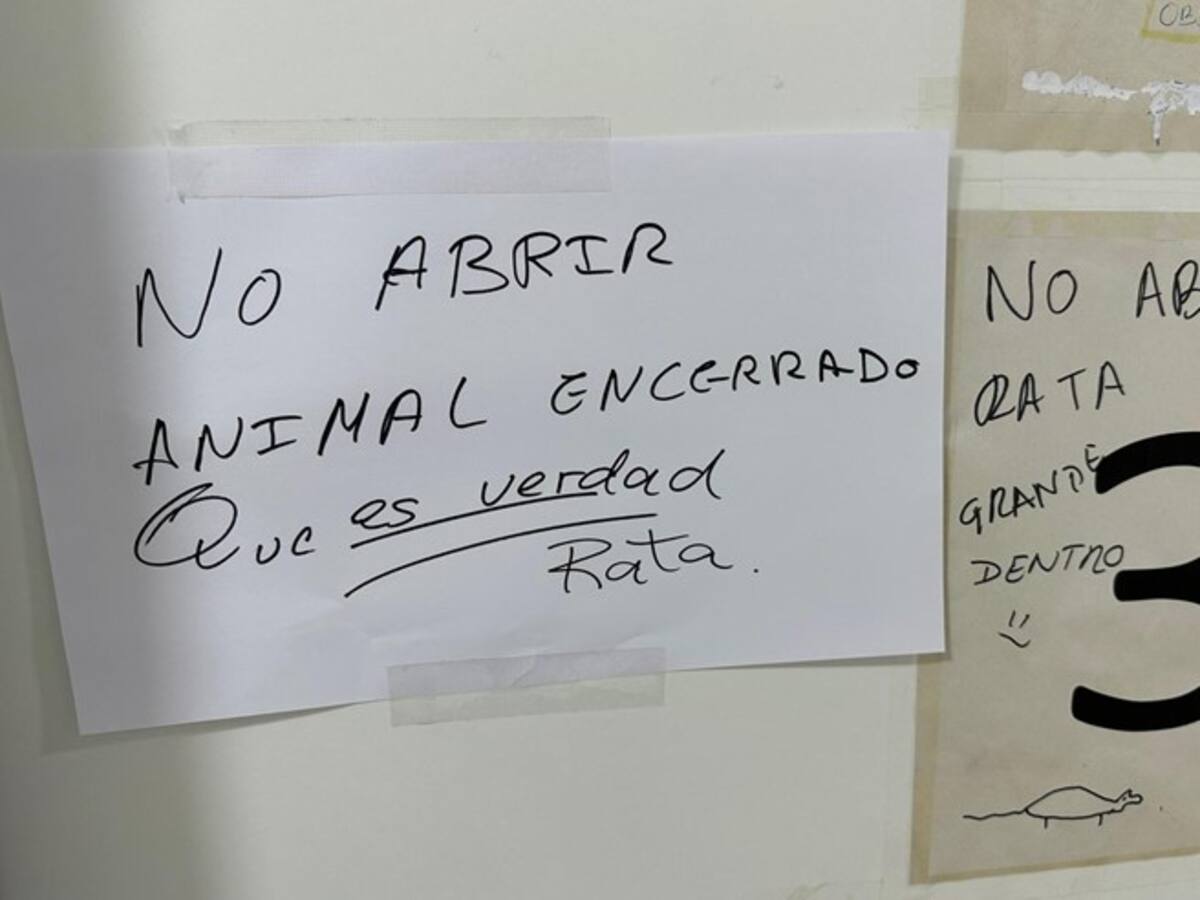 NO ABRIR
ANIMAL ENCERRADO
Que es verdad
Rata.
OB
NO AB
RATA
GRANDE
DENTRO
3